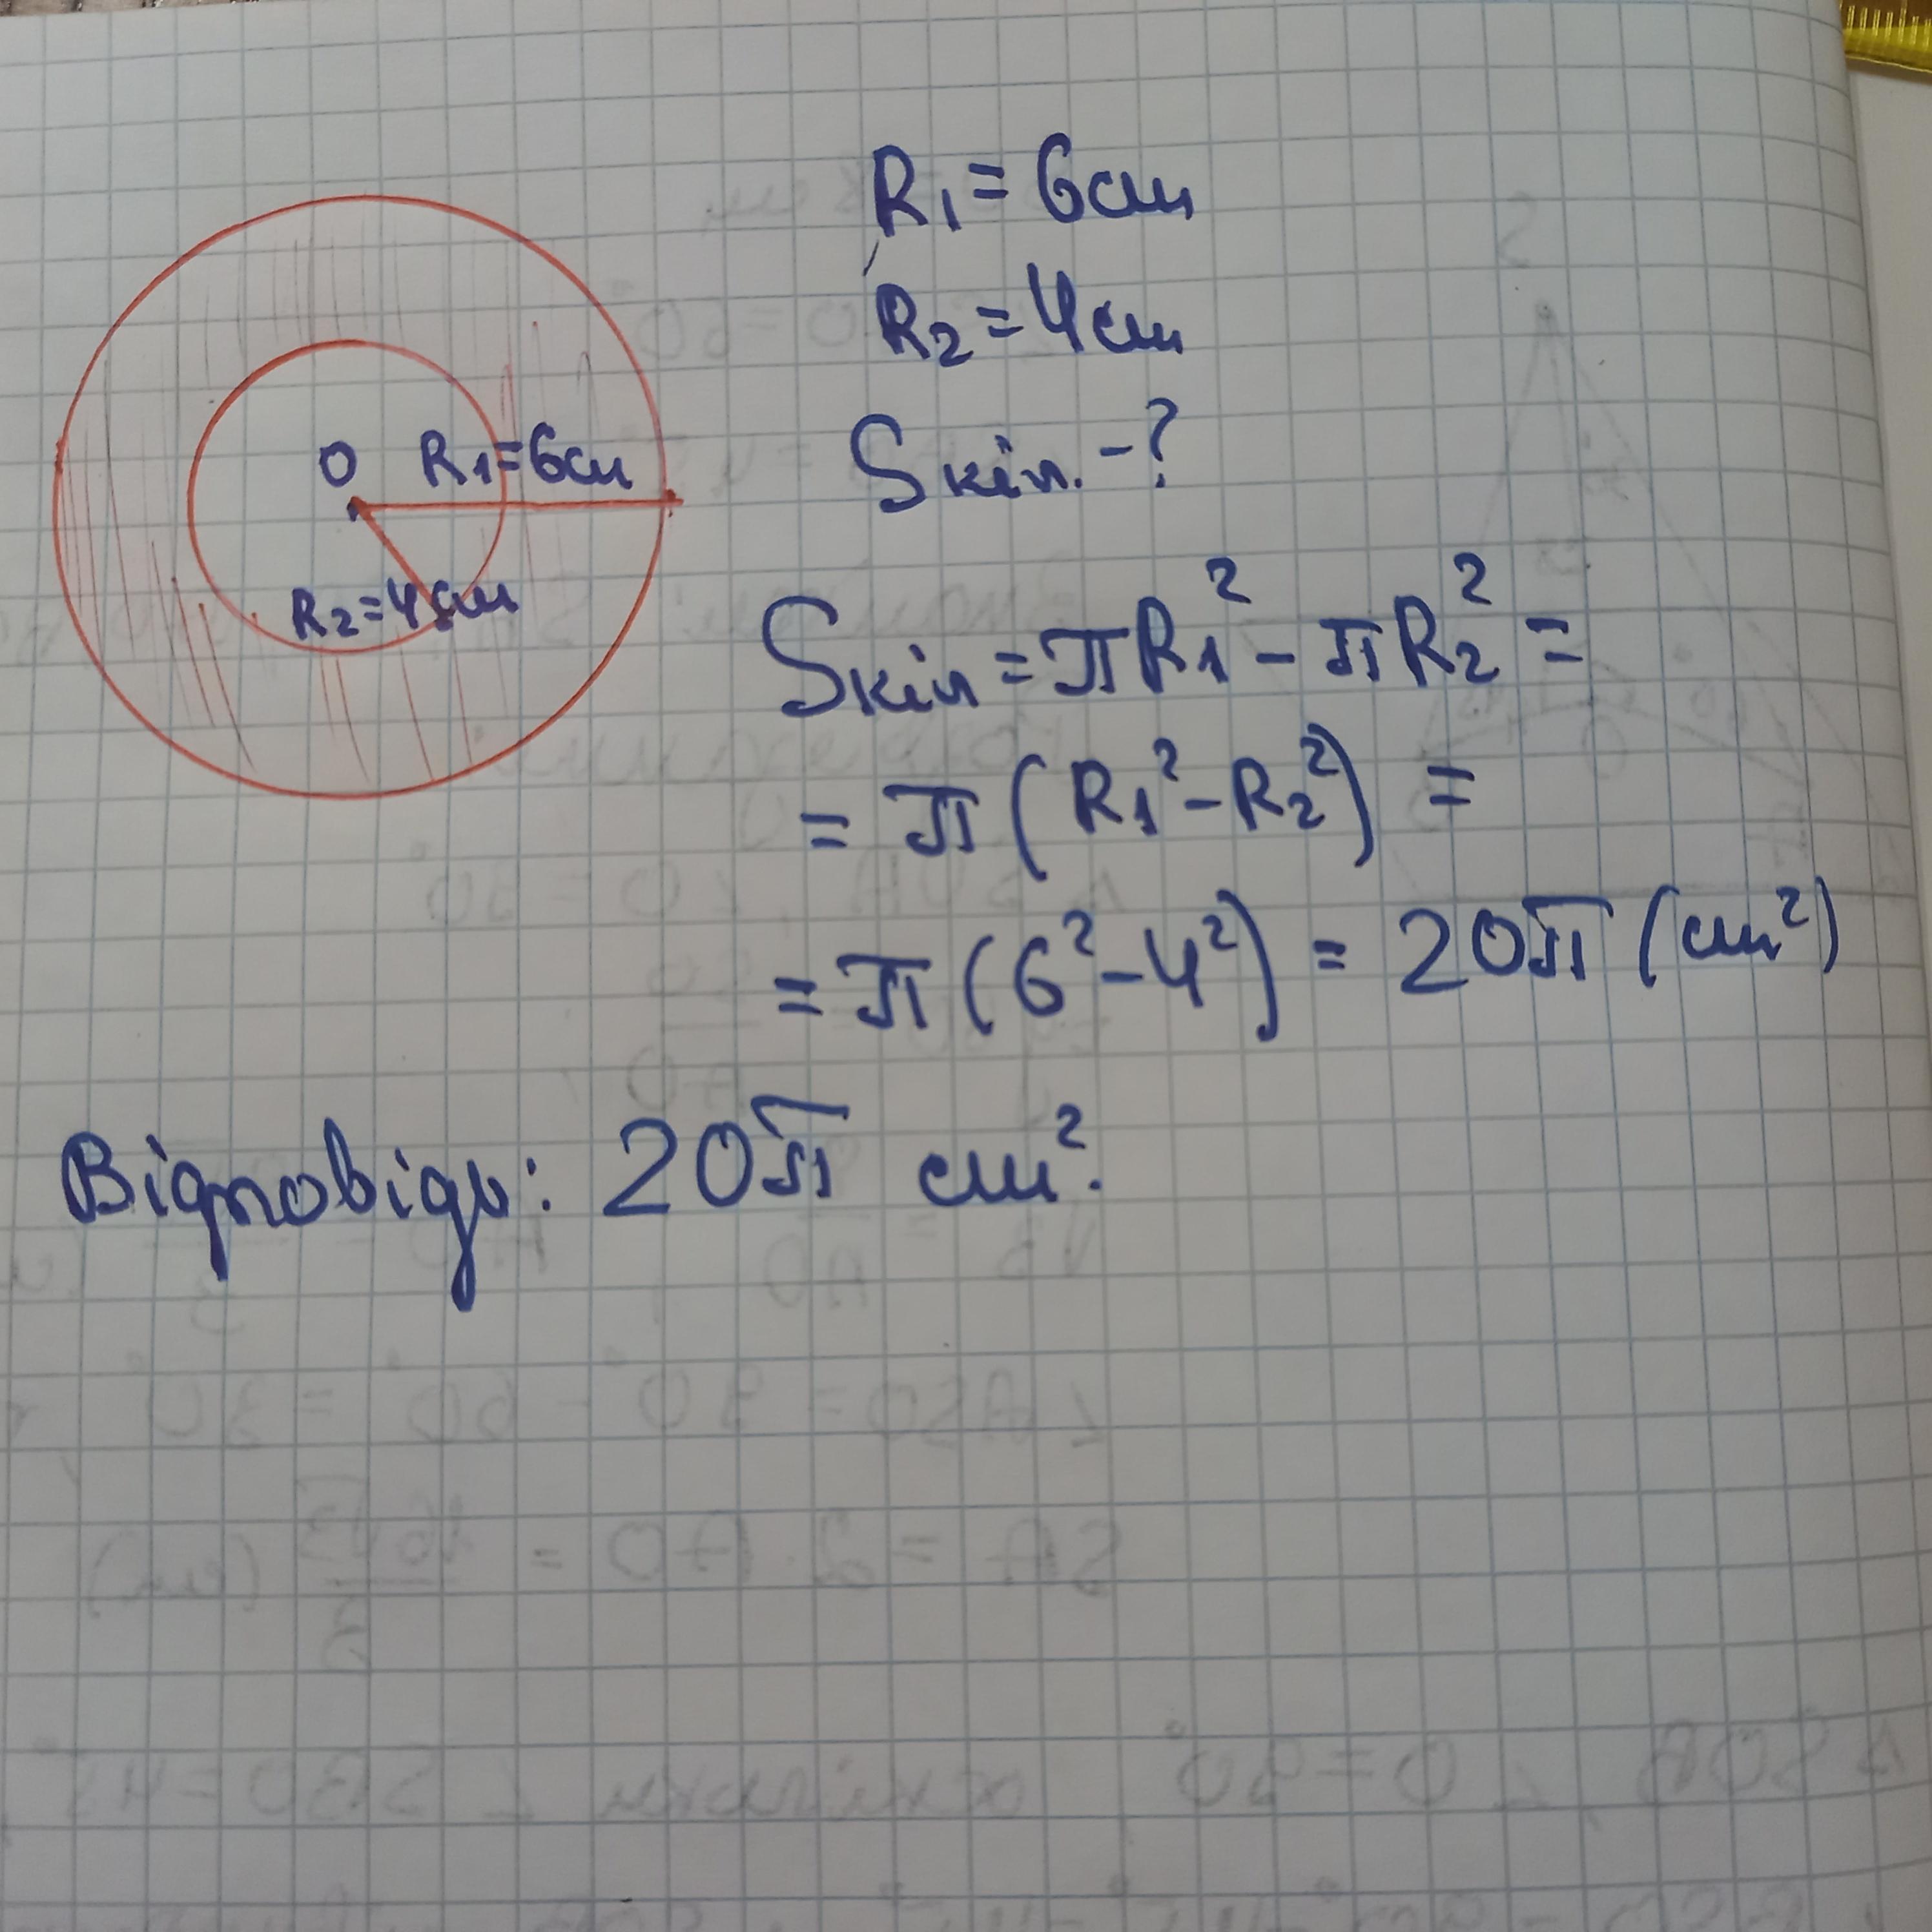 R₁ = 6 см
R₂ = 4 см
Sкіл. - ?
O R₁ = 6 см
R₂ = 4 см
Sкіл = πR₁² - πR₂² =
= π(R₁² - R₂²) =
= π(6² - 4²) = 20π (см²)
Відповідь: 20π см².